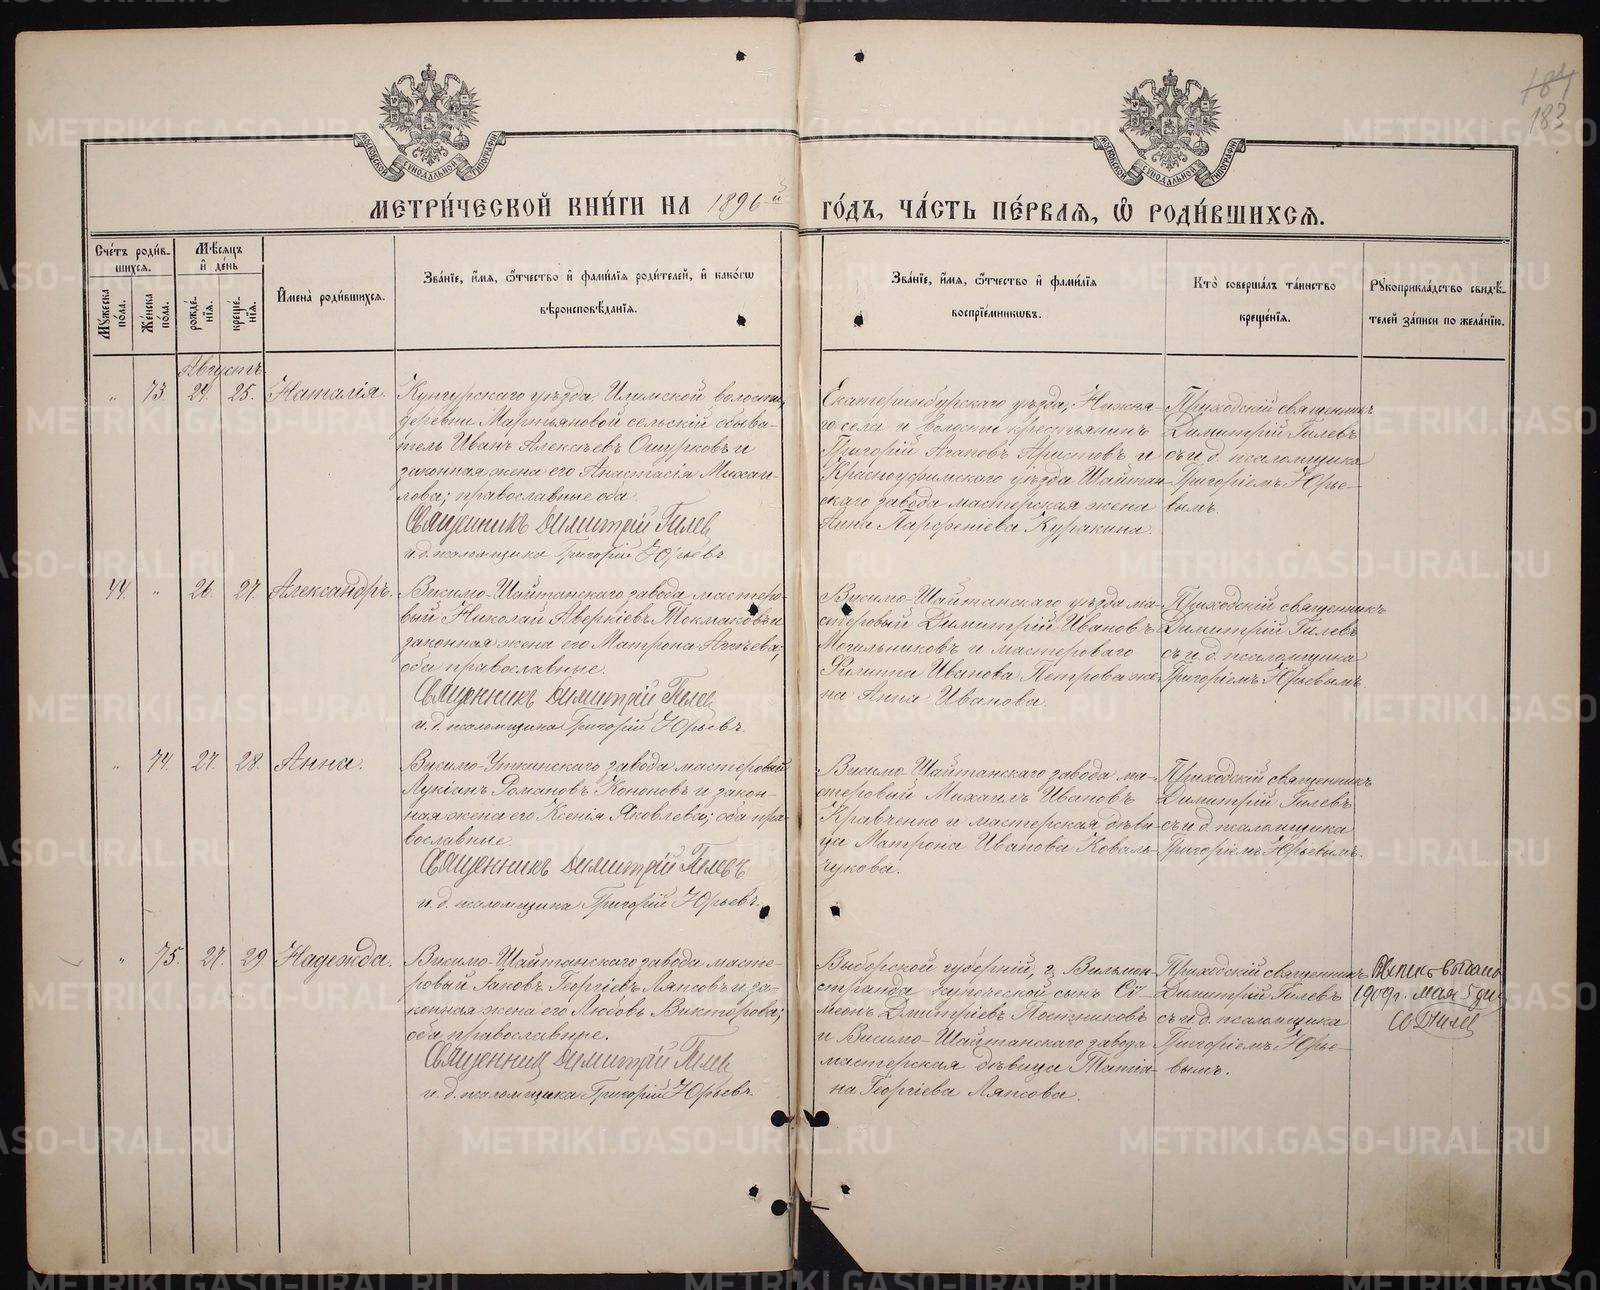 184
183
МОСКОВСКОЙ СУНОДАЛЬНОЙ ТИПОГРАФИИ
МОСКОВСКОЙ СУНОДАЛЬНОЙ ТИПОГРАФИИ
МЕТРИ́ЧЕСКОЙ КНИ́ГИ НА 1896й ГО́ДЪ, ЧА́СТЬ ПЕ́РВАЯ, Ѡ҆ РОДИ́ВШИХСЯ.
Сче́тъ роди́в-
шихся.
Мѣ́сяцъ
и҆ де́нь
Мꙋжеска по́ла.
Же́нска по́ла.
рожде́-
нїя.
креще́-
нїя.
И҆мена̀ роди́вшихся.
Зва́нїе, и҆́мя, ѻ҆́тчество и҆ фами́лїя роди́телей, и҆ како́гѡ
вѣроисповѣ́данїя.
Зва́нїе, и҆́мя, ѻ҆́тчество и҆ фами́лїя
воспрїе́мниковъ.
Кто̀ соверша́лъ та́инство
креще́нїя.
Рꙋкоприкла́дство свидѣ́-
телей за́писи по жела́нїю.
Августъ
„ 73. 24. 25. Наталія.
Кунгурскаго уѣзда, Илимской волости,
деревни Мартьяновой сельскій обыва-
тель Иванъ Алексѣевъ Ошурковъ и
законная жена его Анастасія Михаи-
лова; православные оба.
Священникъ Димитрій Гилев
и.д. псаломщика Григорій Юрьевъ.
Екатеринбургскаго уѣзда, Нижня-
го села и волости крестьянинъ
Григорій Агаповъ Аристовъ и
Красноуфимскаго уѣзда Шайтан-
скаго завода мастерская жена
Анна Парфеніева Куракина.
Приходскій священникъ
Димитрій Гилевъ
съ и.д. псаломщика
Григоріемъ Юрье-
вымъ.
44. „ 26. 27. Александръ.
Висимо-Шайтанскаго завода мастеро-
вый Николай Аверкіевъ Токмаковъ и
законная жена его Матрона
оба православные.
Священникъ Димитрій Гилев
и.д. псаломщика Григорій Юрьевъ.
Висимо-Шайтанскаго уѣзда ма-
стеровый Димитрій Ивановъ
Могильниковъ и мастероваго
Филиппа Иванова Петрова же-
на Анна Иванова.
Приходскій священникъ
Димитрій Гилевъ
съ и.д. псаломщика
Григоріемъ Юрьевымъ.
„ 74. 27. 28. Анна.
Висимо-Уткинскаго завода мастеровый
Лукіанъ Романовъ Кононовъ и закон-
ная жена его Ксенія Яковлева; оба пра-
вославные.
Священникъ Димитрій Гилевъ
и.д. псаломщика Григорій Юрьевъ.
Висимо-Шайтанскаго завода ма-
стеровый Михаилъ Ивановъ
Кравченко и мастерская дѣви-
ца Матрона Иванова Коваль-
чукова.
Приходскій священникъ
Димитрій Гилевъ
съ и.д. псаломщика
Григоріемъ Юрьевымъ.
„ 75. 27. 29. Надежда.
Висимо-Шайтанскаго завода масте-
ровый Іаковъ Георгіевъ Ляпсовъ и за-
конная жена его Любовь Викторова;
оба православные.
Священник Димитрій Гилев
и.д. псаломщика Григорій Юрьевъ.
Выборской губерніи, г. Вильман-
странда купеческой сынъ Сѵ-
меонъ Димитріевъ Постниковъ
и Висимо-Шайтанскаго завода
мастерская дѣвица Татіа-
на Георгіева Ляпсова.
Приходскій священникъ
Димитрій Гилевъ
съ и.д. псаломщика
Григоріемъ Юрье-
вымъ.
1909г. мая 5 дня
METRIKI.GASO-URAL.RU